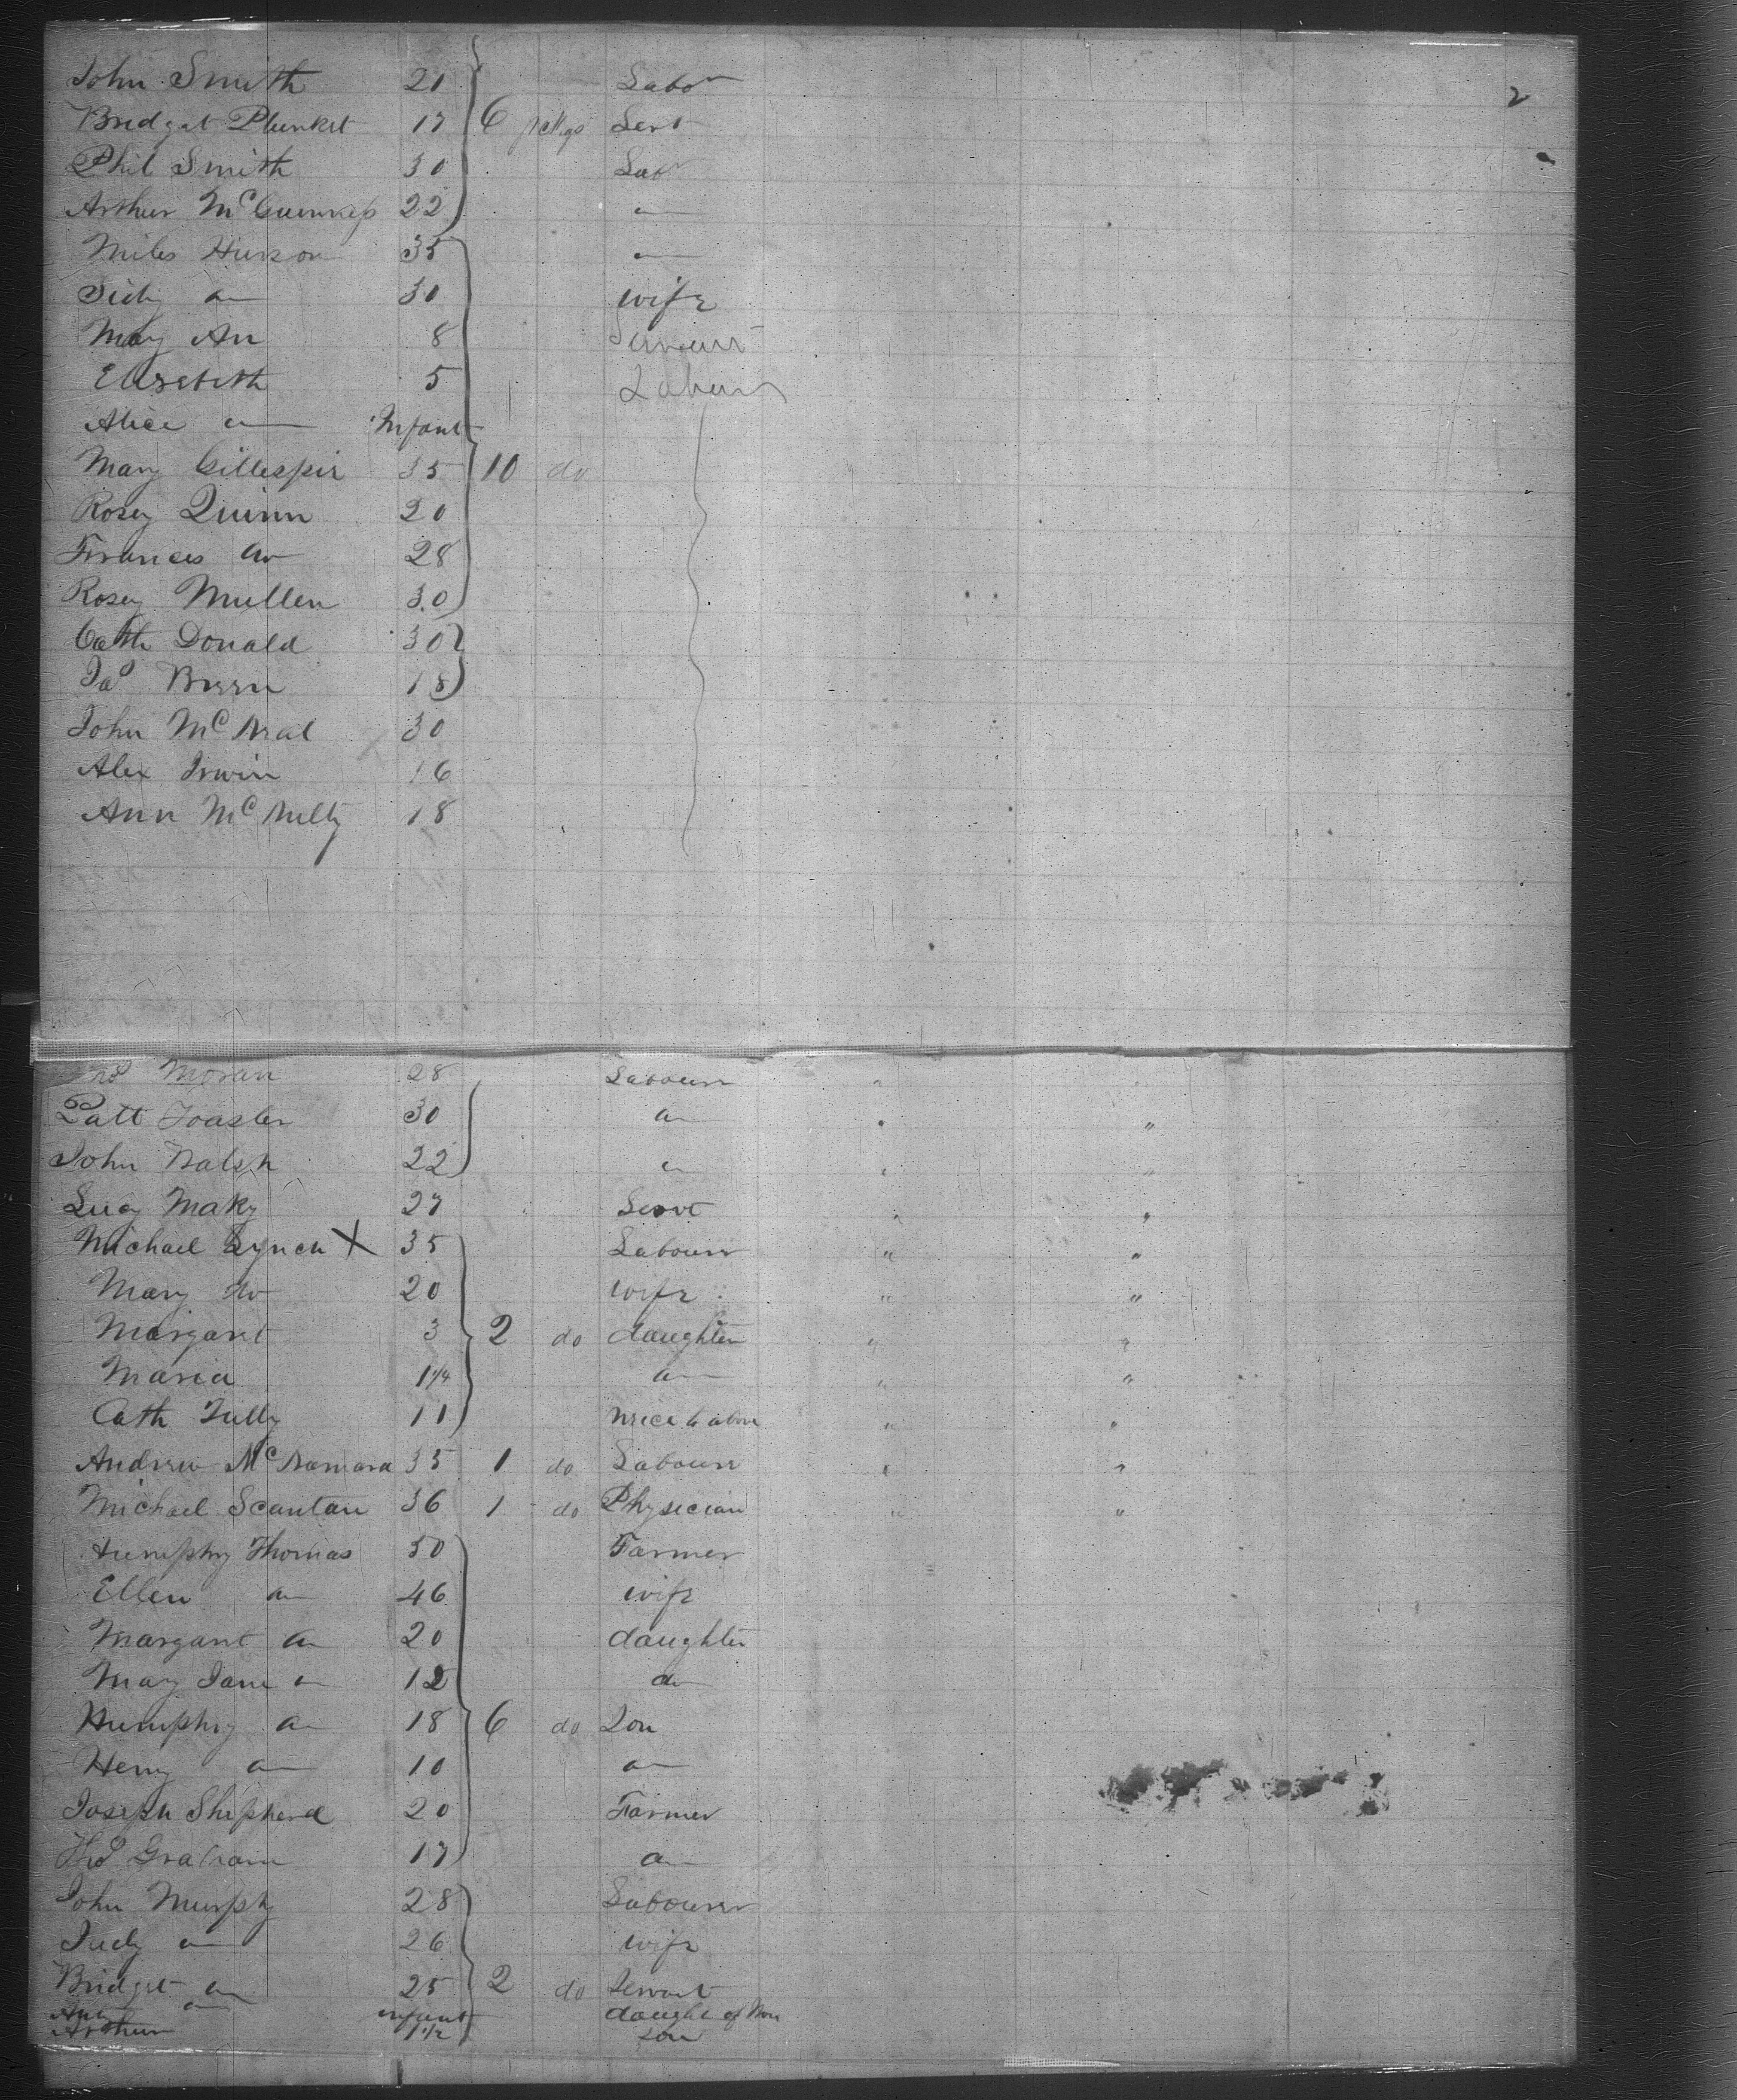 2
John Smith 20 Labr
Bridget Plunket 17 6 pckgs Servt
Phil Smith 30 Labr
Arthur 22 do
Miles 35 do
do 30 wife
Mary An 8
Elizabeth 5 Labour
Alice do Infant
Mary Gillespie 35 10 do
Rosey Quinn 20
Frances do 28
Rosey Mullen 30
Cath Donald 30
Jas 18
John McNeal 30
Alex Irwin 16
Ann McNulty 18
Thos Moran 28 Labourer
Patt 30 do " "
John Walsh 22 do " "
Lucy Maky 27 Servt " "
Michael Lynch X 35 Labourer " "
Mary do 20 wife " "
Margaret 3 2 do daughter " "
Maria 1 1/4 do " "
Cath Tully 11 niece to above " "
Andrew McNamara 35 1 do Labourer " "
Michael Scanlan 36 1 do Physician " "
Humphry Thomas 50 Farmer
Ellen do 46 wife
Margaret do 20 daughter
Mary Jane do 12 do
Humphry do 18 6 do Son
Henry do 10 do
Joseph Shepherd 20 Farmer
Thos Graham 17 do
John Murphy 28 Labourer
Judy do 26 wife
Bridget do 25 2 do Servant
do infant of
Arthur 1 1/2 son